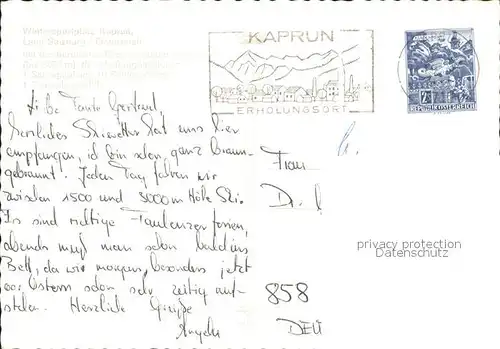 Wintersportplatz Kaprun,
Land Salzburg - Österreich
KAPRUN
ERHOLUNGSORT
REPUBLIK ÖSTERREICH
Liebe Tante Gertrud,
herrliches Skiwetter hat uns hier
empfangen, ich bin schon ganz braun
gebrannt. Jeden Tag fahren wir
zwischen 1500 und 3000 m Höhe Ski.
Es sind richtige Faulenzerferien,
abends muß man schon bald ins
Bett, da wir morgens, besonders jetzt
Ostern schon sehr zeitig auf-
stehen. Herzliche Grüße
Angela
Frau
Dr. 
858
DEU
privacy protection
Datenschutz